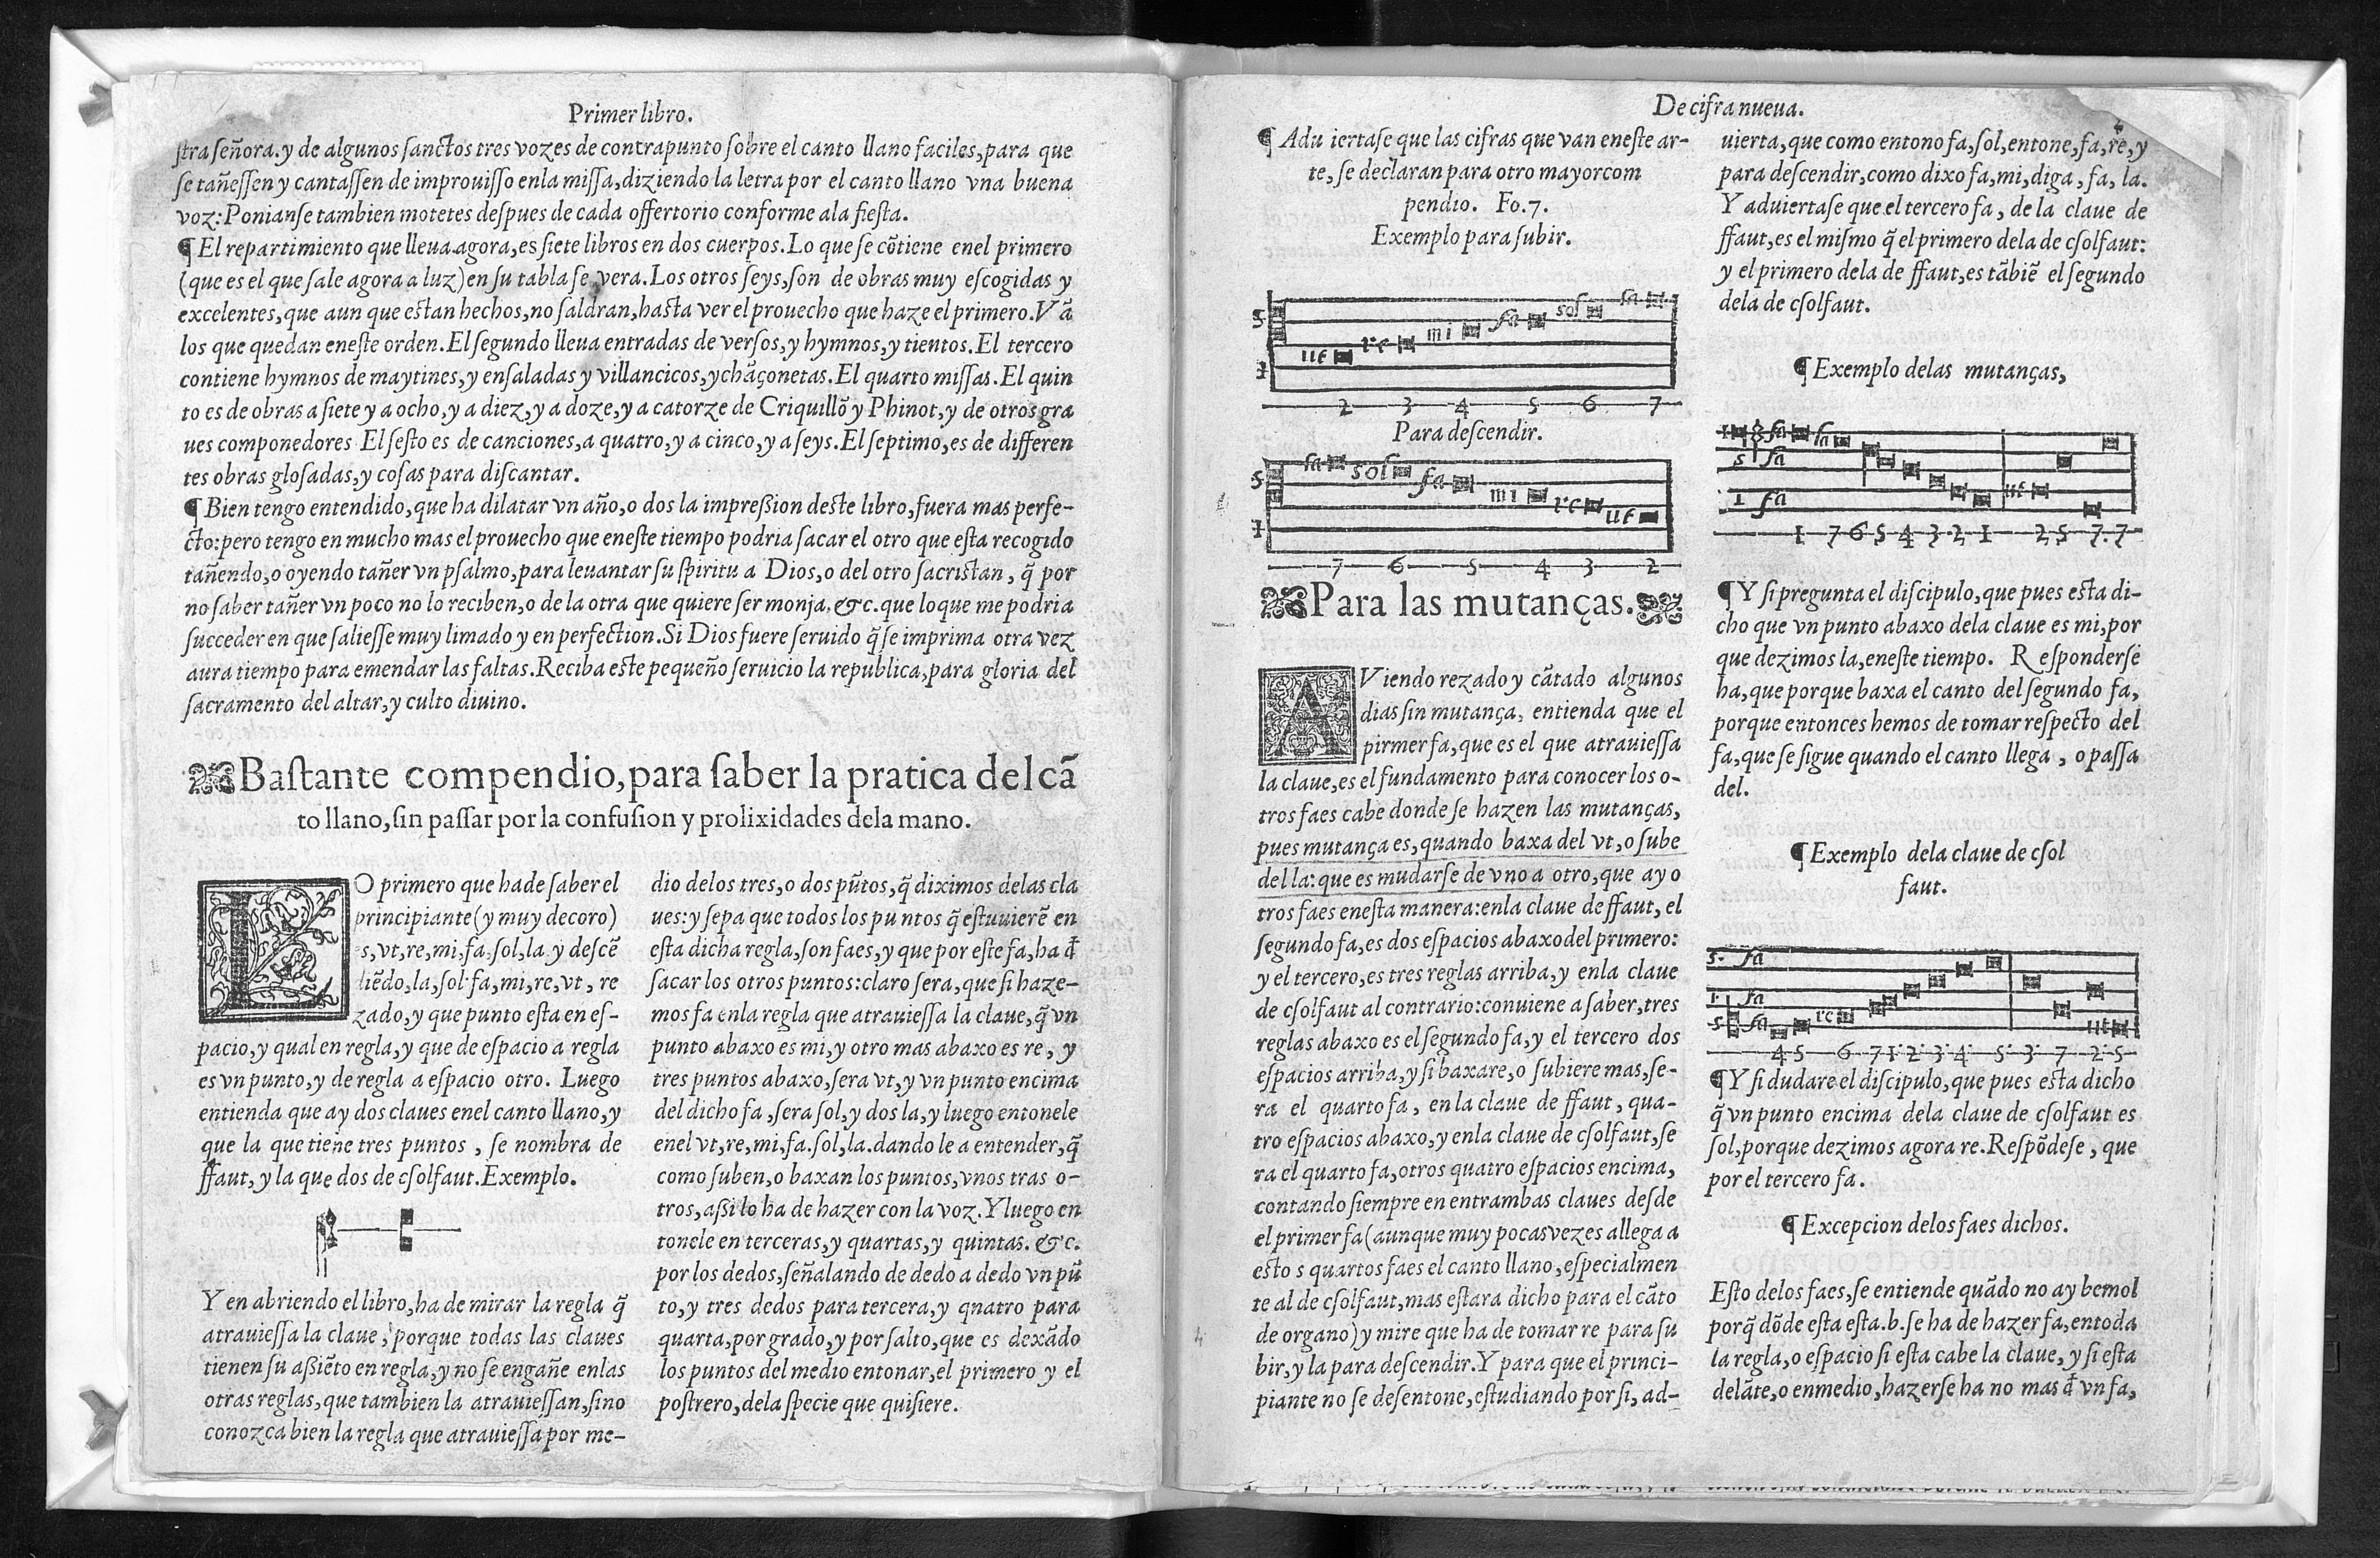 Primer libro.
ſtra ſeñora. y de algunos ſanctos tres vozes de contrapunto ſobre el canto llano faciles, para que
ſe tañeſſen y cantaſſen de improuiſſo enla miſſa, diziendo la letra por el canto llano vna buena
voz: Ponianſe tambien motetes deſpues de cada offertorio conforme ala fieſta.
¶ El repartimiento que lleua agora, es ſiete libros en dos cuerpos. Lo que ſe cõtiene enel primero
(que es el que ſale agora a luz) en ſu tabla ſe vera. Los otros ſeys, ſon de obras muy eſcogidas y
excelentes, que aun que eſtan hechos, no ſaldran, haſta ver el prouecho que haze el primero. Vã
los que quedan eneſte orden. El ſegundo lleua entradas de verſos, y hymnos, y tientos. El tercero
contiene hymnos de maytines, y enſaladas y villancicos, y chãçonetas. El quarto miſſas. El quin
to es de obras a ſiete y a ocho, y a diez, y a doze, y a catorze de Criquillõ y Phinot, y de otros gra
ues componedores El ſeſto es de canciones, a quatro, y a cinco, y a ſeys. El ſeptimo, es de differen
tes obras gloſadas, y coſas para diſcantar.
¶ Bien tengo entendido, que ha dilatar vn año, o dos la impreßion deſte libro, fuera mas perfe-
cto: pero tengo en mucho mas el prouecho que eneſte tiempo podria ſacar el otro que eſta recogido
tañendo, o oyendo tañer vn pſalmo, para leuantar ſu ſpiritu a Dios, o del otro ſacriſtan, q̃ por
no ſaber tañer vn poco no lo reciben, o de la otra que quiere ſer monja. &c. que lo que me podria
ſucceder en que ſalieſſe muy limado y en perfection. Si Dios fuere ſeruido q̃ ſe imprima otra vez
aura tiempo para emendar las faltas. Reciba eſte pequeño ſeruicio la republica, para gloria del
ſacramento del altar, y culto diuino.
Baſtante compendio, para ſaber la pratica del cã
to llano, ſin paſſar por la confuſion y prolixidades dela mano.
LO primero que ha de ſaber el
principiante (y muy decoro)
es, vt, re, mi, fa, ſol, la. y deſcẽ
diẽdo, la, ſol fa, mi, re, vt, re
zado, y que punto eſta en eſ-
pacio, y qual en regla, y que de eſpacio a regla
es vn punto, y de regla a eſpacio otro. Luego
entienda que ay dos claues enel canto llano, y
que la que tiene tres puntos, ſe nombra de
ffaut, y la que dos de cſolfaut. Exemplo.
Y en abriendo el libro, ha de mirar la regla q̃
atrauieſſa la claue, porque todas las claues
tienen ſu aßiẽto en regla, y no ſe engañe enlas
otras reglas, que tambien la atrauieſſan, ſino
conozca bien la regla que atrauieſſa por me-
dio delos tres, o dos pũtos, q̃ diximos delas cla
ues: y ſepa que todos los puntos q̃ eſtuuierẽ en
eſta dicha regla, ſon faes, y que por eſte fa, ha đ
ſacar los otros puntos: claro ſera, que ſi haze-
mos fa enla regla que atrauieſſa la claue, q̃ vn
punto abaxo es mi, y otro mas abaxo es re, y
tres puntos abaxo, ſera vt, y vn punto encima
del dicho fa, ſera ſol, y dos la, y luego entonele
enel vt, re, mi, fa. ſol, la. dando le a entender, q̃
como ſuben, o baxan los puntos, vnos tras o-
tros, aßi lo ha de hazer con la voz. Y luego en
tonele en terceras, y quartas, y quintas. &c.
por los dedos, ſeñalando de dedo a dedo vn pũ
to, y tres dedos para tercera, y qnatro para
quarta, por grado, y por ſalto, que es dexãdo
los puntos del medio entonar, el primero y el
poſtrero, dela ſpecie que quiſiere.
De cifra nueua.
4
¶ Adu iertaſe que las cifras que van eneſte ar-
te, ſe declaran para otro mayor com
pendio. Fo. 7.
Exemplo para ſubir.
5 1
ut re mi fa sol la
2 3 4 5 6 7
Para deſcendir.
5 1
la sol fa mi re ut
7 6 5 4 3 2
Para las mutanças.
AViendo rezado y cãtado algunos
dias ſin mutança, entienda que el
pirmer fa, que es el que atrauieſſa
la claue, es el fundamento para conocer los o-
tros faes cabe donde ſe hazen las mutanças,
pues mutança es, quando baxa del vt, o ſube
del la: que es mudarſe de vno a otro, que ay o
tros faes eneſta manera: enla claue de ffaut, el
ſegundo fa, es dos eſpacios abaxo del primero:
y el tercero, es tres reglas arriba, y enla claue
de cſolfaut al contrario: conuiene a ſaber, tres
reglas abaxo es el ſegundo fa, y el tercero dos
eſpacios arriba, y ſi baxare, o ſubiere mas, ſe-
ra el quarto fa, en la claue de ffaut, qua-
tro eſpacios abaxo, y enla claue de cſolfaut, ſe
ra el quarto fa, otros quatro eſpacios encima,
contando ſiempre en entrambas claues deſde
el primer fa (aunque muy pocas vezes allega a
eſto s quartos faes el canto llano, eſpecialmen
te al de cſolfaut, mas eſtara dicho para el cãto
de organo) y mire que ha de tomar re para ſu
bir, y la para deſcendir. Y para que el princi-
piante no ſe deſentone, eſtudiando por ſi, ad-
uierta, que como entono fa, ſol, entone, fa, re, y
para deſcendir, como dixo fa, mi, diga, fa, la.
Y aduiertaſe que el tercero fa, de la claue de
ffaut, es el miſmo q̃ el primero dela de cſolfaut:
y el primero dela de ffaut, es tãbiẽ el ſegundo
dela de cſolfaut.
¶ Exemplo delas mutanças,
fa la
5 fa
1 fa
ut
1 7 6 5 4 3 2 1 2 5 7. 7
¶ Y ſi pregunta el diſcipulo, que pues eſta di-
cho que vn punto abaxo dela claue es mi, por
que dezimos la, eneſte tiempo. R eſponderſe
ha, que porque baxa el canto del ſegundo fa,
porque entonces hemos de tomar reſpecto del
fa, que ſe ſigue quando el canto llega, o paſſa
del.
¶ Exemplo dela claue de cſol
faut.
5. fa
1. fa
5 fa re ut
4 5 6 7 1· 2· 3· 4· 5· 3· 7 2· 5
¶ Y ſi dudare el diſcipulo, que pues eſta dicho
q̃ vn punto encima dela claue de cſolfaut es
ſol, porque dezimos agora re. Reſpõdeſe, que
por el tercero fa.
¶ Excepcion delos faes dichos.
Eſto delos faes, ſe entiende quãdo no ay bemol
porq̃ dõde eſta eſta. b. ſe ha de hazer fa, en toda
la regla, o eſpacio ſi eſta cabe la claue, y ſi eſta
delãte, o enmedio, hazerſe ha no mas đ vn fa,